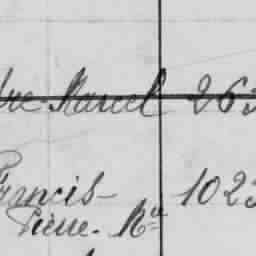 bre Marcel 263
Francis- 1023
Pierre. Mce